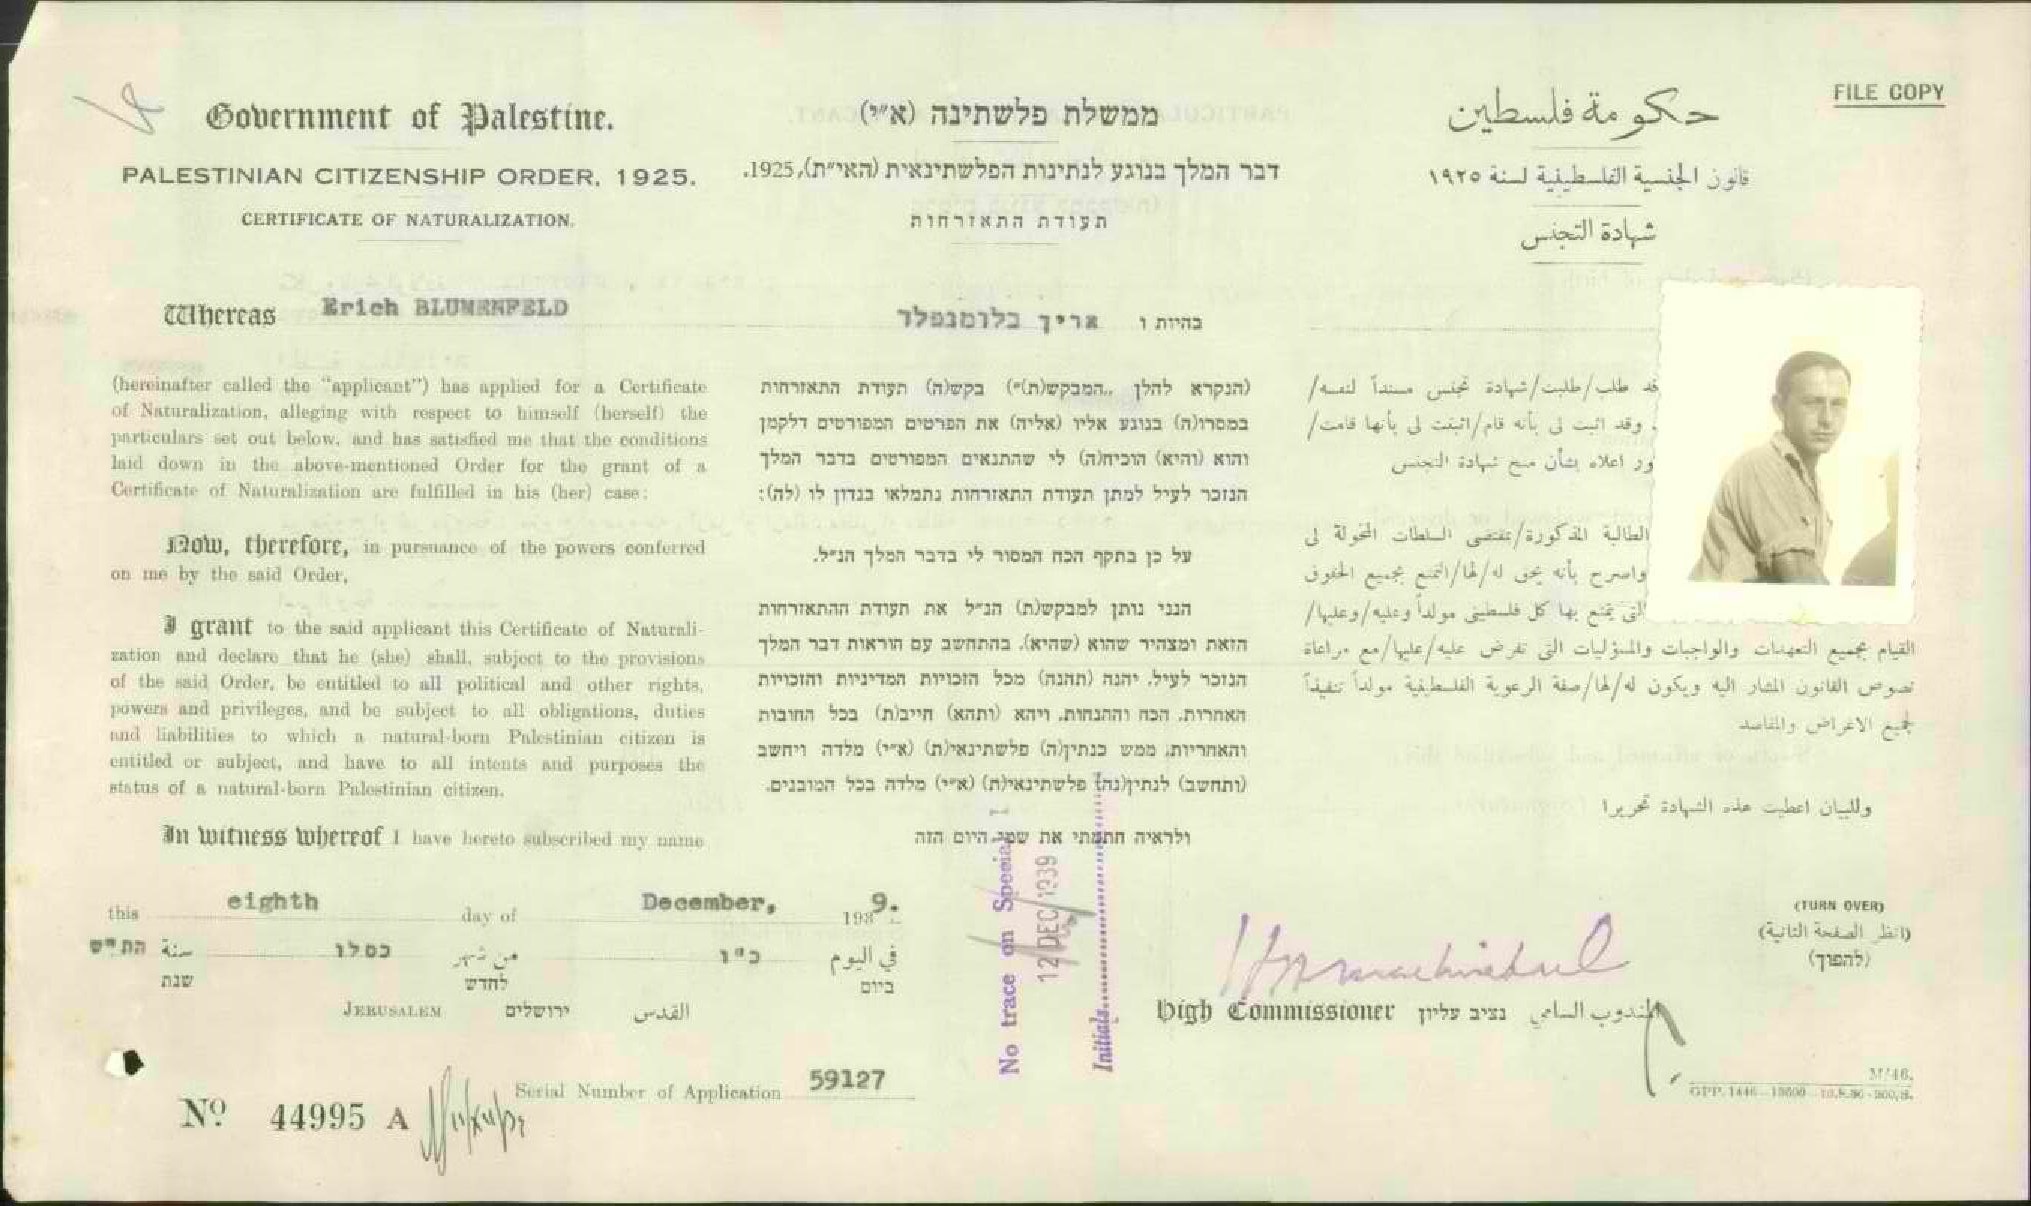 FILE COPY
Government of Palestine.
PALESTINIAN CITIZENSHIP ORDER, 1925.
CERTIFICATE OF NATURALIZATION.
Whereas Erich BLUMENFELD
(hereinafter called the “applicant”) has applied for a Certificate
of Naturalization, alleging with respect to himself (herself) the
particulars set out below, and has satisfied me that the conditions
laid down in the above-mentioned Order for the grant of a
Certificate of Naturalization are fulfilled in his (her) case:
Now, therefore, in pursuance of the powers conferred
on me by the said Order,
I grant to the said applicant this Certificate of Naturali-
zation and declare that he (she) shall, subject to the provisions
of the said Order, be entitled to all political and other rights,
powers and privileges, and be subject to all obligations, duties
and liabilities to which a natural-born Palestinian citizen is
entitled or subject, and have to all intents and purposes the
status of a natural-born Palestinian citizen.
In witness whereof I have hereto subscribed my name
ממשלת פלשתינה (א״י)
דבר המלך בנוגע לנתינות הפלשתינאית (האי״ת), 1925.
תעודת התאזרחות
בהיות ו אריך בלומנפלד
(הנקרא להלן „המבקש(ת)״) בקש(ה) תעודת התאזרחות
במסרו(ה) בנוגע אליו (אליה) את הפרטים המפורטים דלקמן
והוא (והיא) הוכיח(ה) לי שהתנאים המפורטים בדבר המלך
הנזכר לעיל למתן תעודת התאזרחות נתמלאו בנדון לו (לה):
על כן בתקף הכח המסור לי בדבר המלך הנ״ל.
הנני נותן למבקש(ת) הנ״ל את תעודת ההתאזרחות
הזאת ומצהיר שהוא (שהיא), בהתחשב עם הוראות דבר המלך
הנזכר לעיל, יהנה (תהנה) מכל הזכויות המדיניות והזכויות
האחרות, הכח וההנחות, ויהא (ותהא) חייב(ת) בכל החובות
והאחריות, ממש כנתין(ה) פלשתינאי(ת) (א״י) מלדה ויחשב
(ותחשב) לנתין(נה) פלשתינאי(ת) (א״י) מלדה בכל המובנים.
ולראיה חתמתי את שמי היום הזה
حكومة فلسطين
قانون الجنسية الفلسطينية لسنة ١٩٢٥
شهادة التجنس
قد طلب/طلبت/شهادة تجنس مسنداً لنفسه/
وقد اثبت لي بأنه قام/اثبتت لي بأنها قامت/
ور اعلاه بشأن منح شهادة التجنس
الطالبة المذكورة/بمقتضى السلطات المخولة لي
واصرح بأنه يحق له/لها/التمتع بجميع الحقوق
التي يتمتع بها كل فلسطيني مولداً وعليه/وعليها/
القيام بجميع التعهدات والواجبات والمسؤليات التي تفرض عليه/عليها/مع مراعاة
نصوص القانون المشار اليه ويكون له/لها/صفة الرعوية الفلسطينية مولداً تنفيذاً
لجميع الاغراض والمقاصد
وللبيان اعطيت هذه الشهادة تحريرا
this eighth day of December, 1939.
في اليوم כ"ו من شهر כסלו سنة הת"ש
ביום לחדש שנת
JERUSALEM ירושלים القدس
No trace on Special
12 DEC 1939
Initials
High Commissioner נציב עליון المندوب السامي
(TURN OVER)
(انظر الصفحة الثانية)
(להפוך)
Serial Number of Application 59127
No 44995 A
M/46.